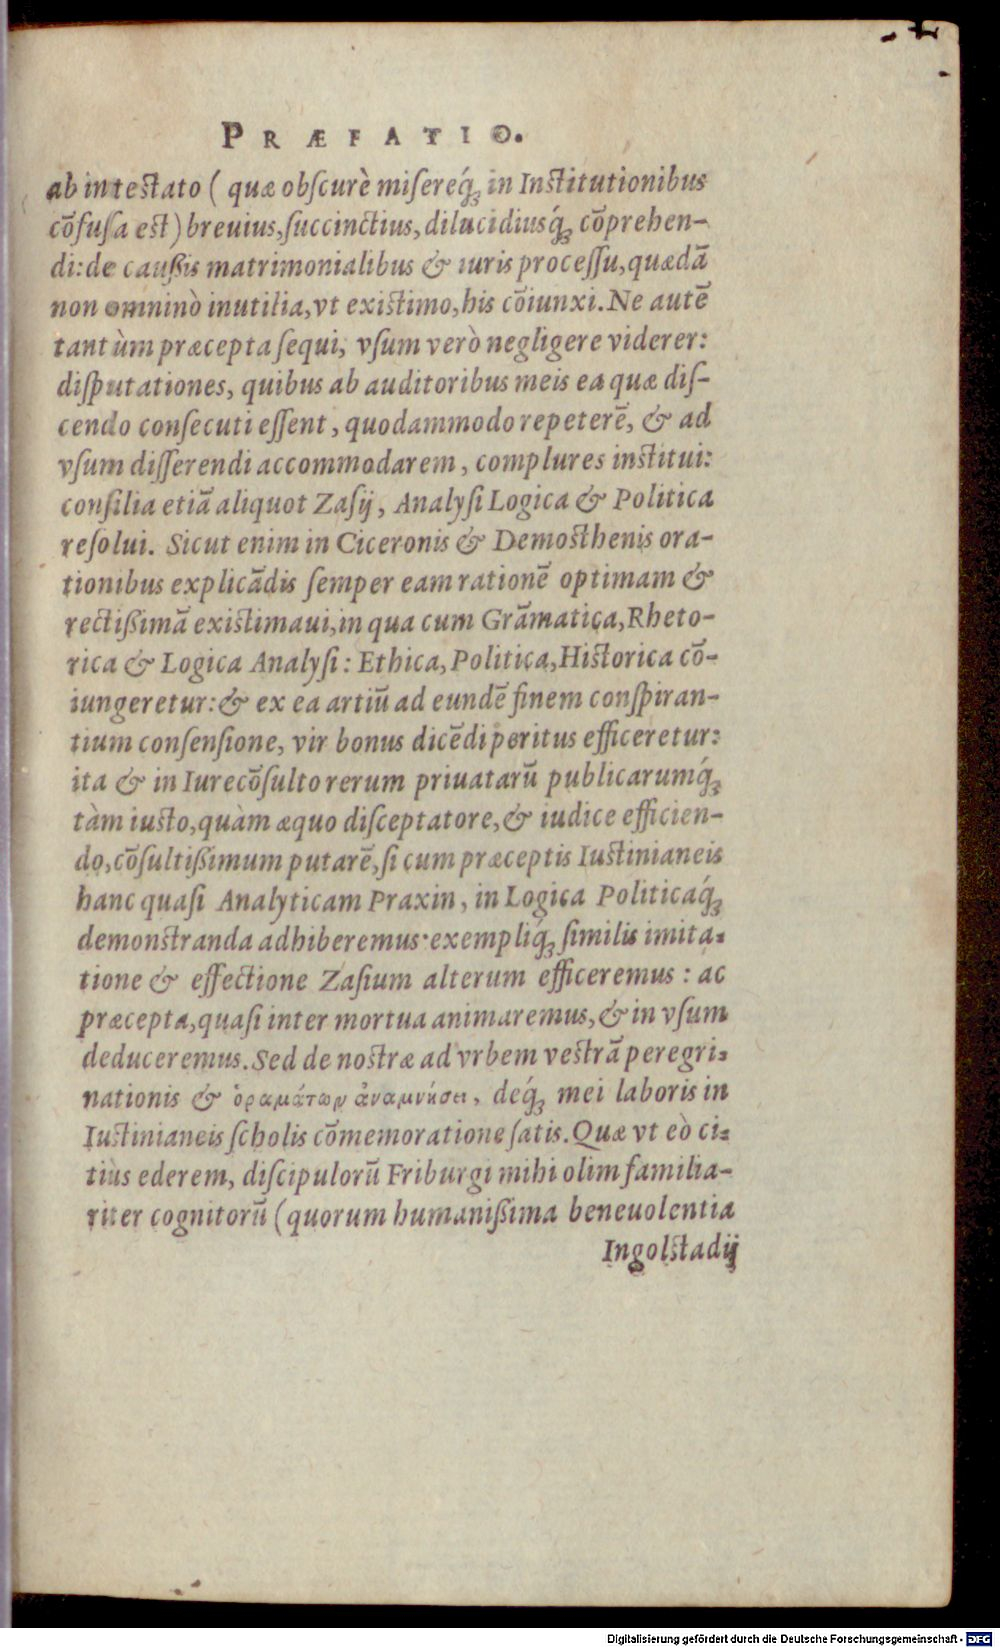 PRÆFATIO.
ab intestato ( quæ obſcurè miſereq́ꝫ in Institutionibus
cōfuſa est) breuius, ſuccinctius, dilucidiusq́ꝫ cōprehen-
di: de cauſſis matrimonialibus & iuris proceſſu, quædā
non omninò inutilia, vt existimo, his cōiunxi. Ne autē
tantùm præcepta ſequi, vſum verò negligere viderer:
diſputationes, quibus ab auditoribus meis ea quæ diſ-
cendo conſecuti eſſent, quodammodo repeterē, & ad
vſum diſſerendi accommodarem, complures institui:
conſilia etiā aliquot Zaſij, Analyſi Logica & Politica
reſolui. Sicut enim in Ciceronis & Demosthenis ora-
tionibus explicādis ſemper eam rationē optimam &
rectiſſimā existimaui, in qua cum Grāmatica, Rheto-
rica & Logica Analyſi: Ethica, Politica, Historica cō-
iungeretur: & ex ea artiū ad eundē finem conſpiran-
tium conſenſione, vir bonus dicēdi peritus efficeretur:
ita & in Iurecōſulto rerum priuatarū publicarumq́ꝫ
tàm iusto, quàm æquo diſceptatore, & iudice efficien-
do, cōſultiſſimum putarē, ſi cum præceptis Iustinianeis
hanc quaſi Analyticam Praxin, in Logica Politicaq́ꝫ
demonstranda adhiberemus: exempliq́ꝫ ſimilis imita-
tione & effectione Zaſium alterum efficeremus: ac
præcepta, quaſi inter mortua animaremus, & in vſum
deduceremus. Sed de nostræ ad vrbem vestrā peregri-
nationis & ὁραμάτων ἀναμνήσει, deq́ꝫ mei laboris in
Iustinianeis ſcholis cōmemoratione ſatis. Quæ vt eò ci-
tiùs ederem, diſcipulorū Friburgi mihi olim familia-
riter cognitorū (quorum humaniſſima beneuolentia
Ingolstadij
Digitalisierung gefördert durch die Deutsche Forschungsgemeinschaft - DFG